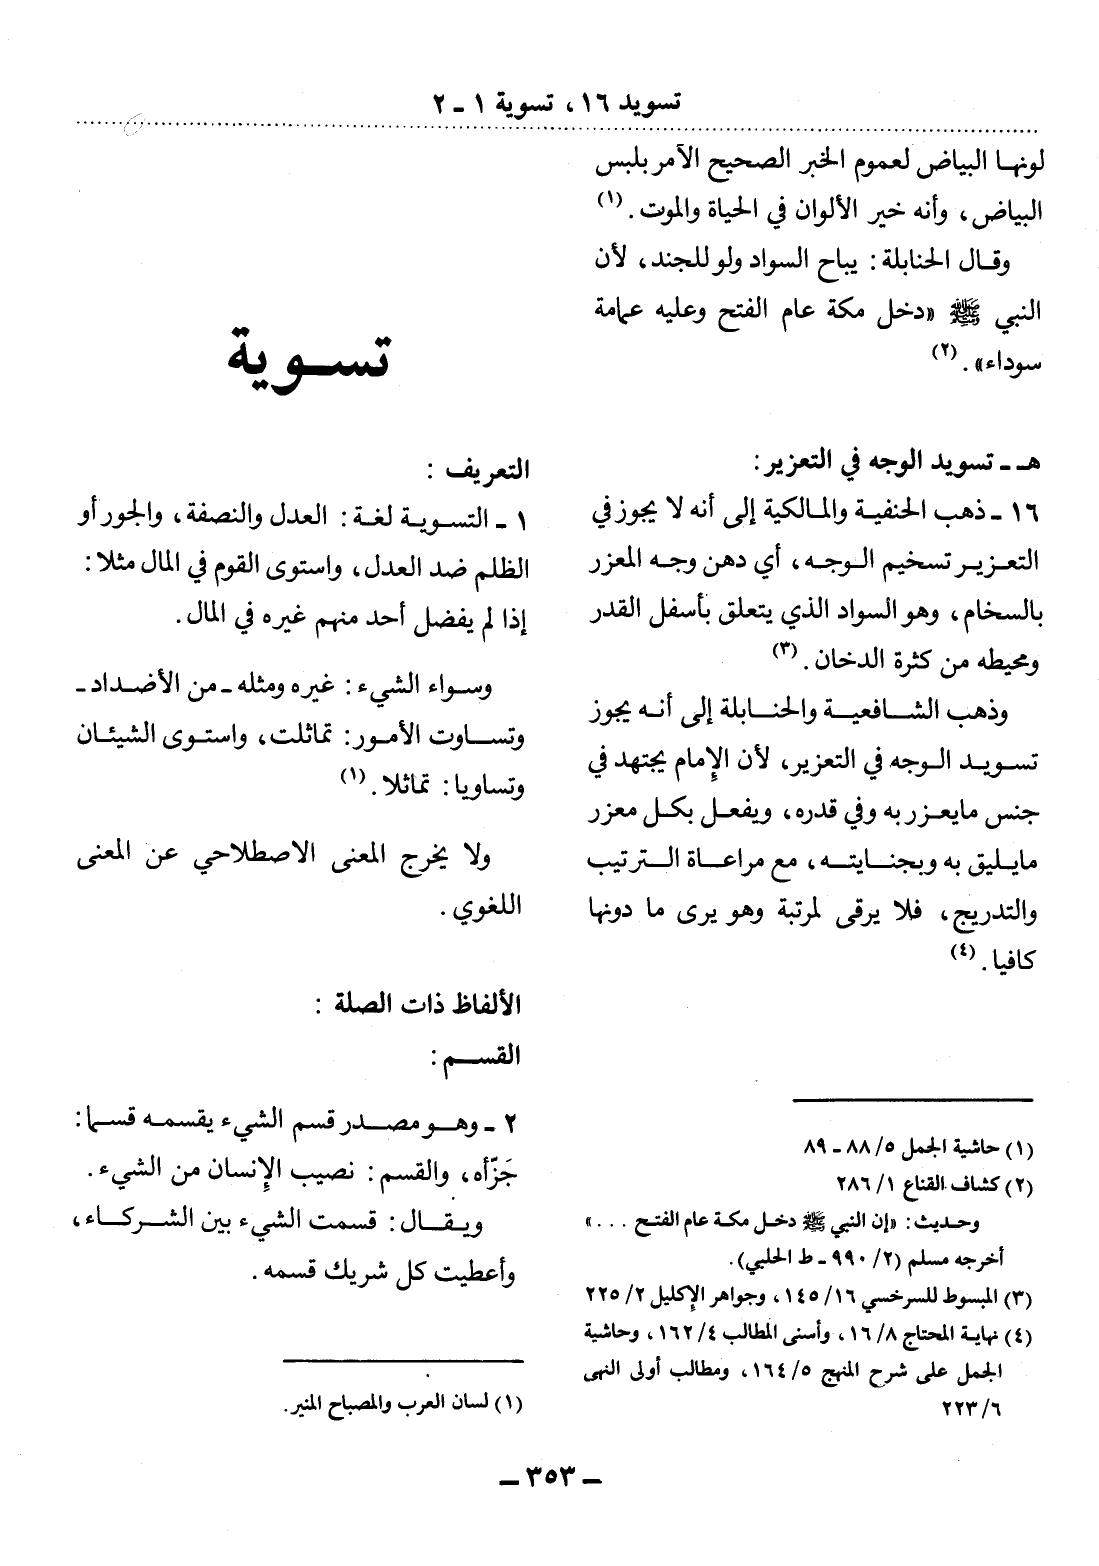 تسويد ١٦، تسوية ١ ـ ٢
لونها البياض لعموم الخبر الصحيح الآمر بلبس
البياض، وأنه خير الألوان في الحياة والموت. (١)
وقال الحنابلة: يباح السواد ولو للجند، لأن
النبي ﷺ «دخل مكة عام الفتح وعليه عمامة
سوداء». (٢)
هـ ـ تسويد الوجه في التعزير:
١٦ ـ ذهب الحنفية والمالكية إلى أنه لا يجوز في
التعزير تسخيم الوجه، أي دهن وجه المعزر
بالسخام، وهو السواد الذي يتعلق بأسفل القدر
ومحيطه من كثرة الدخان. (٣)
وذهب الشافعية والحنابلة إلى أنه يجوز
تسويد الوجه في التعزير، لأن الإمام يجتهد في
جنس مايعزر به وفي قدره، ويفعل بكل معزر
مايليق به وبجنايته، مع مراعاة الترتيب
والتدريج، فلا يرقى لمرتبة وهو يرى ما دونها
كافيا. (٤)
(١) حاشية الجمل ٥/ ٨٨ ـ ٨٩
(٢) كشاف القناع ١/ ٢٨٦
وحديث: «إن النبي ﷺ دخل مكة عام الفتح ...»
أخرجه مسلم (٢/ ٩٩٠ ـ ط الحلبي).
(٣) المبسوط للسرخسي ١٦/ ١٤٥، وجواهر الإكليل ٢/ ٢٢٥
(٤) نهاية المحتاج ٨/ ١٦، وأسنى المطالب ٤/ ١٦٢، وحاشية
الجمل على شرح المنهج ٥/ ١٦٤، ومطالب أولى النهى
٦/ ٢٢٣
تسوية
التعريف :
١ ـ التسوية لغة: العدل والنصفة، والجور أو
الظلم ضد العدل، واستوى القوم في المال مثلا:
إذا لم يفضل أحد منهم غيره في المال.
وسواء الشيء: غيره ومثله ـ من الأضداد ـ
وتساوت الأمور: تماثلت، واستوى الشيئان
وتساويا: تماثلا. (١)
ولا يخرج المعنى الاصطلاحي عن المعنى
اللغوي.
الألفاظ ذات الصلة :
القسم :
٢ ـ وهو مصدر قسم الشيء يقسمه قسما:
جَزّأه، والقسم: نصيب الإنسان من الشيء.
ويقال: قسمت الشيء بين الشركاء،
وأعطيت كل شريك قسمه.
(١) لسان العرب والمصباح المنير.
ـ ٣٥٣ ـ